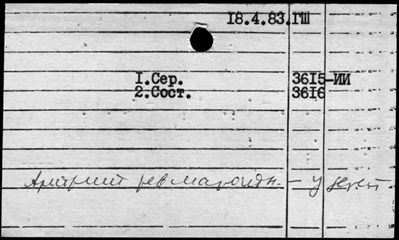 18.4.83.ГШ
1.Сер. 3615-ИИ
2.Сост. 3616
Артрит ревматоидн. - у детей